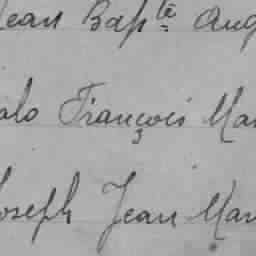 Jean Bapte Aug
alo François Mar
Joseph Jean Mar